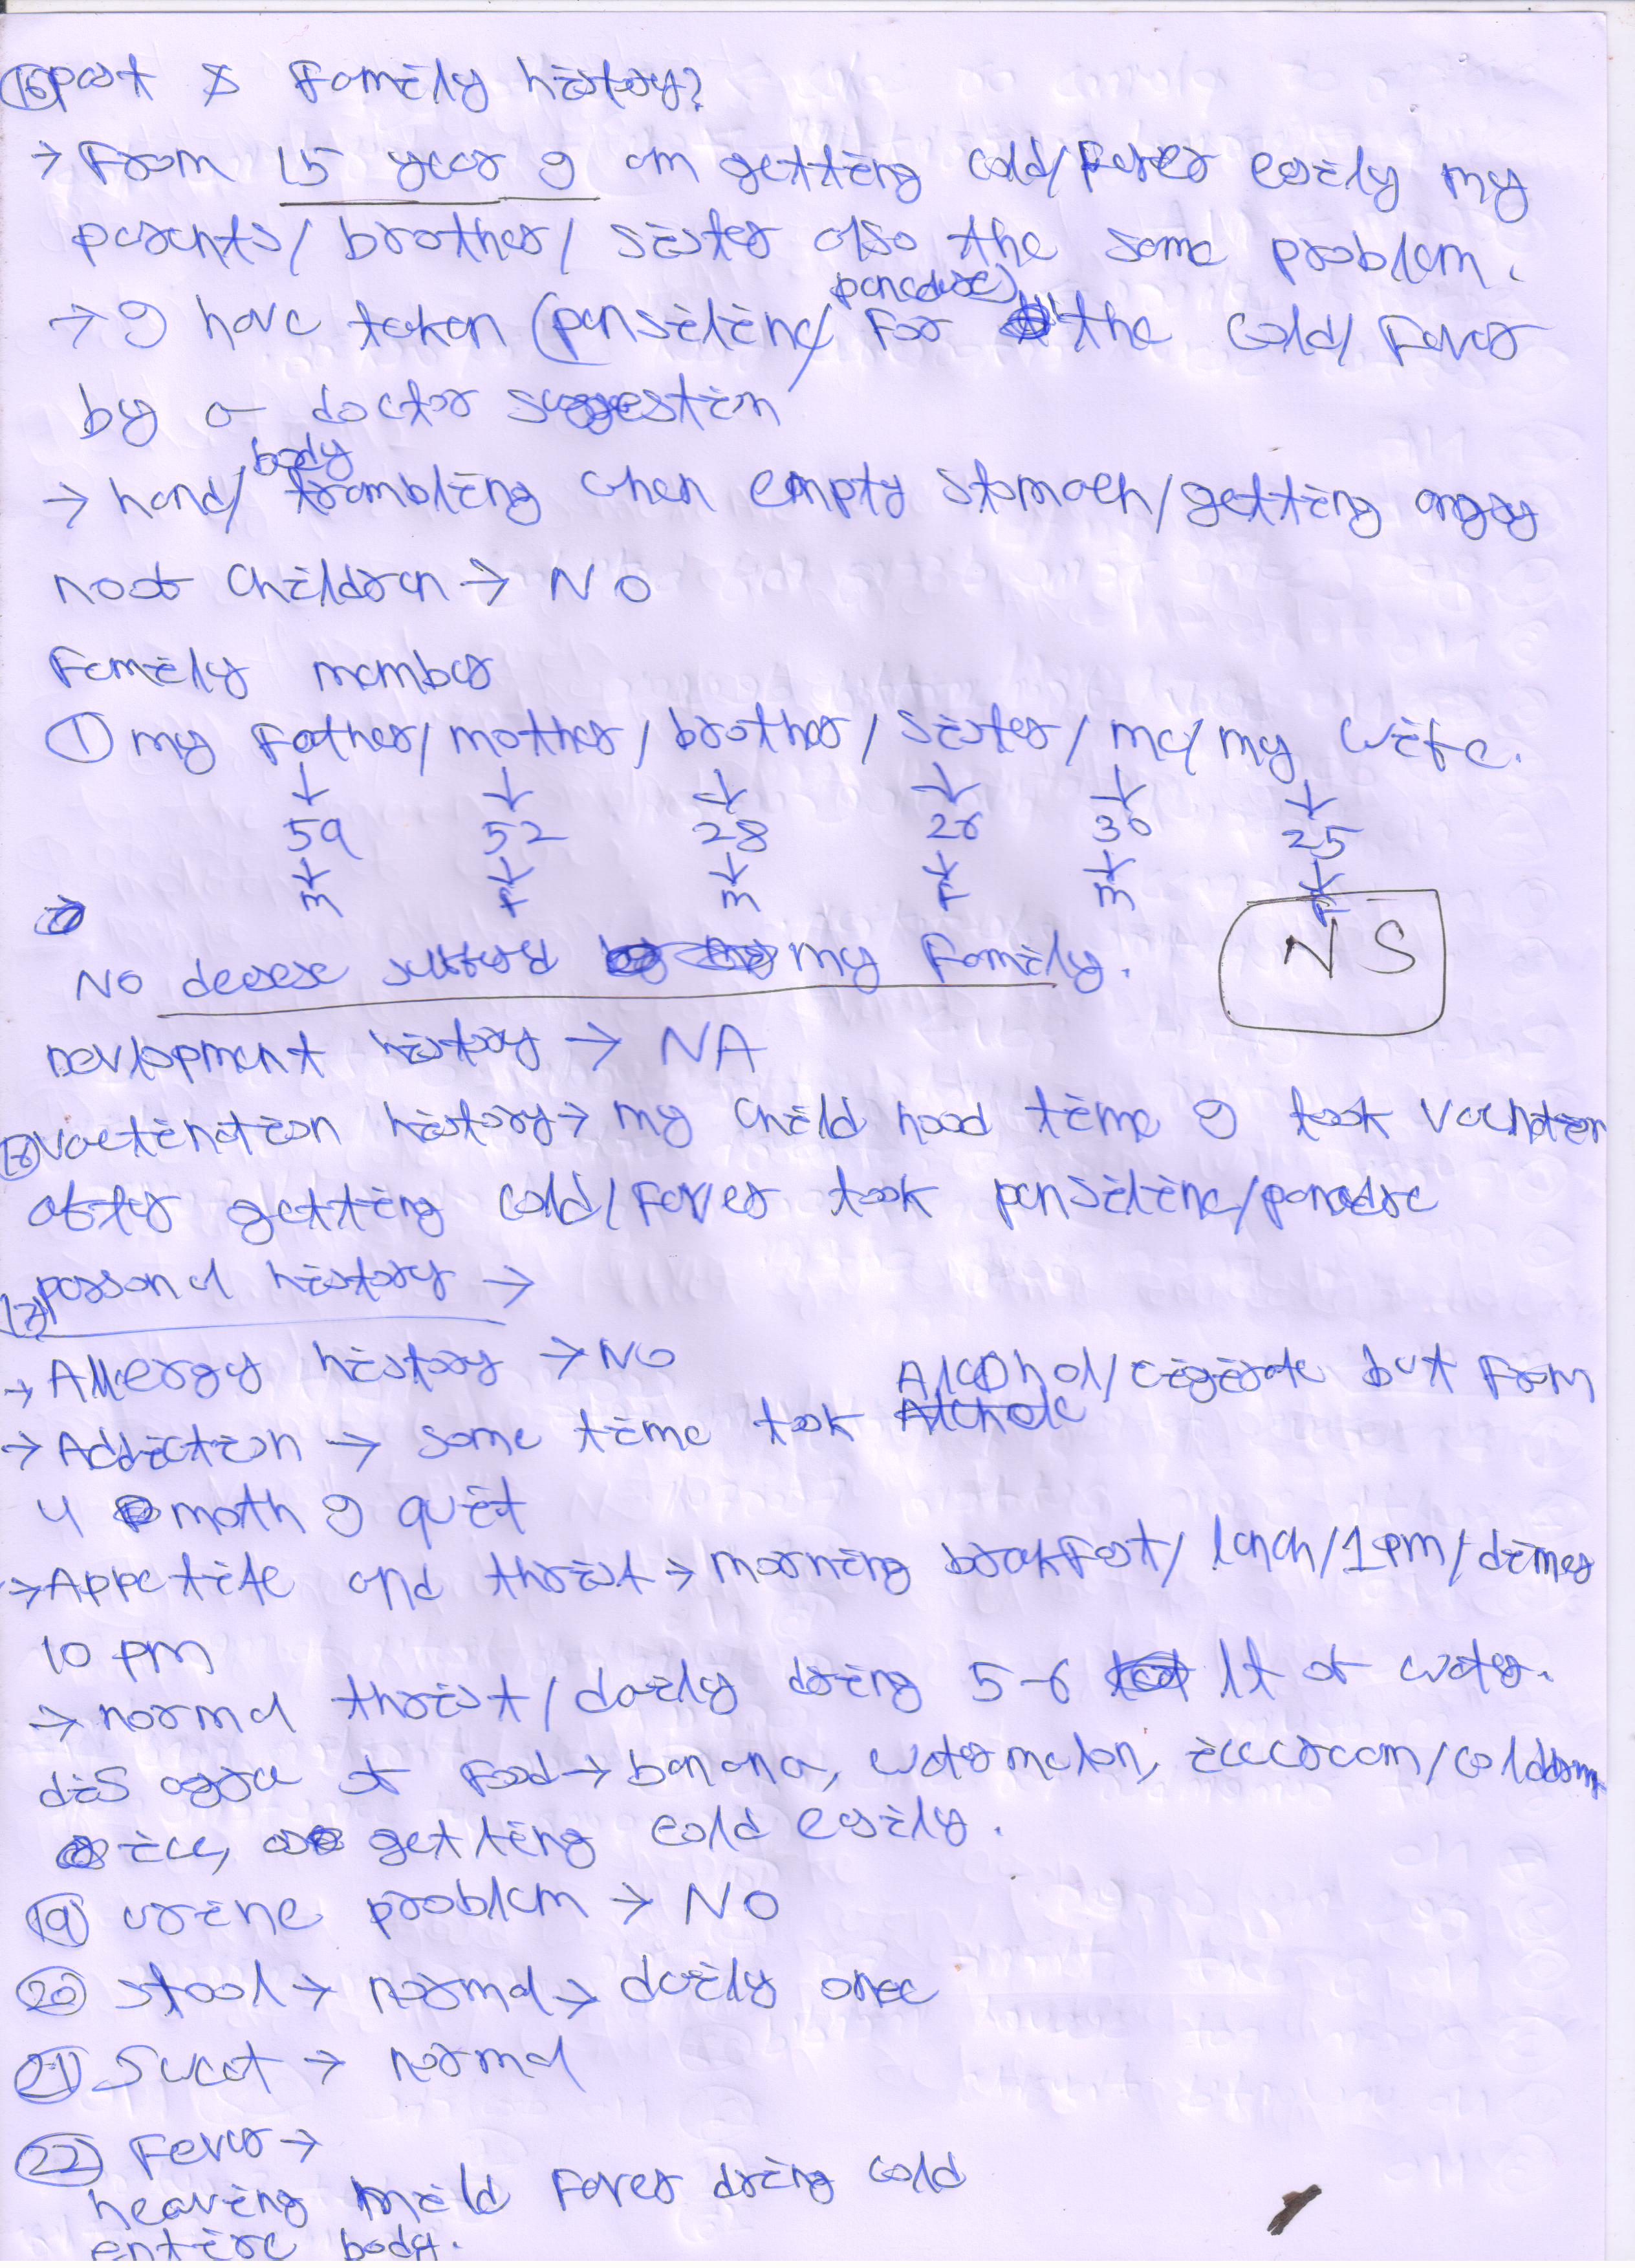 16) past & Family history?
→ From 15 year I am getting cold/Fever easily my
parents/ brother/ sister also the same problem.
→ I have taken (pensiline/ panadxe) For the cold/ Fever
by a doctor suggestin
→ hand/ body trambling when empty stomach/getting angry
noot children → NO
Family member
① my Father/ mother/ brother/ sister/ me/ my wife.
↓ ↓ ↓ ↓ ↓ ↓
59 52 28 26 30 25
↓ ↓ ↓ ↓ ↓ ↓
m F m F m F
NS
NO desese sufferd my Family.
Devlopment history → NA
18) Vactination history → my child hood time I took
after getting cold/Fever took pensiline/panadre
17) personal history →
→ Allergy history → NO
→ Addiction → some time took Alcohol/cigirate but From
4 month I quit
→ Appetite and thrist → morning brakfast/ lanch/1pm/dimer
10 pm
→ normal thrist/daily dring 5-6 lt of water.
dis agree of Food → banana, watermelon, icecream/
ice, getting cold easily.
19) urine problem → NO
20) stool → normal → daily once
21) Sweat → normal
22) Fever →
heaving mild Fever dring cold
entire body.